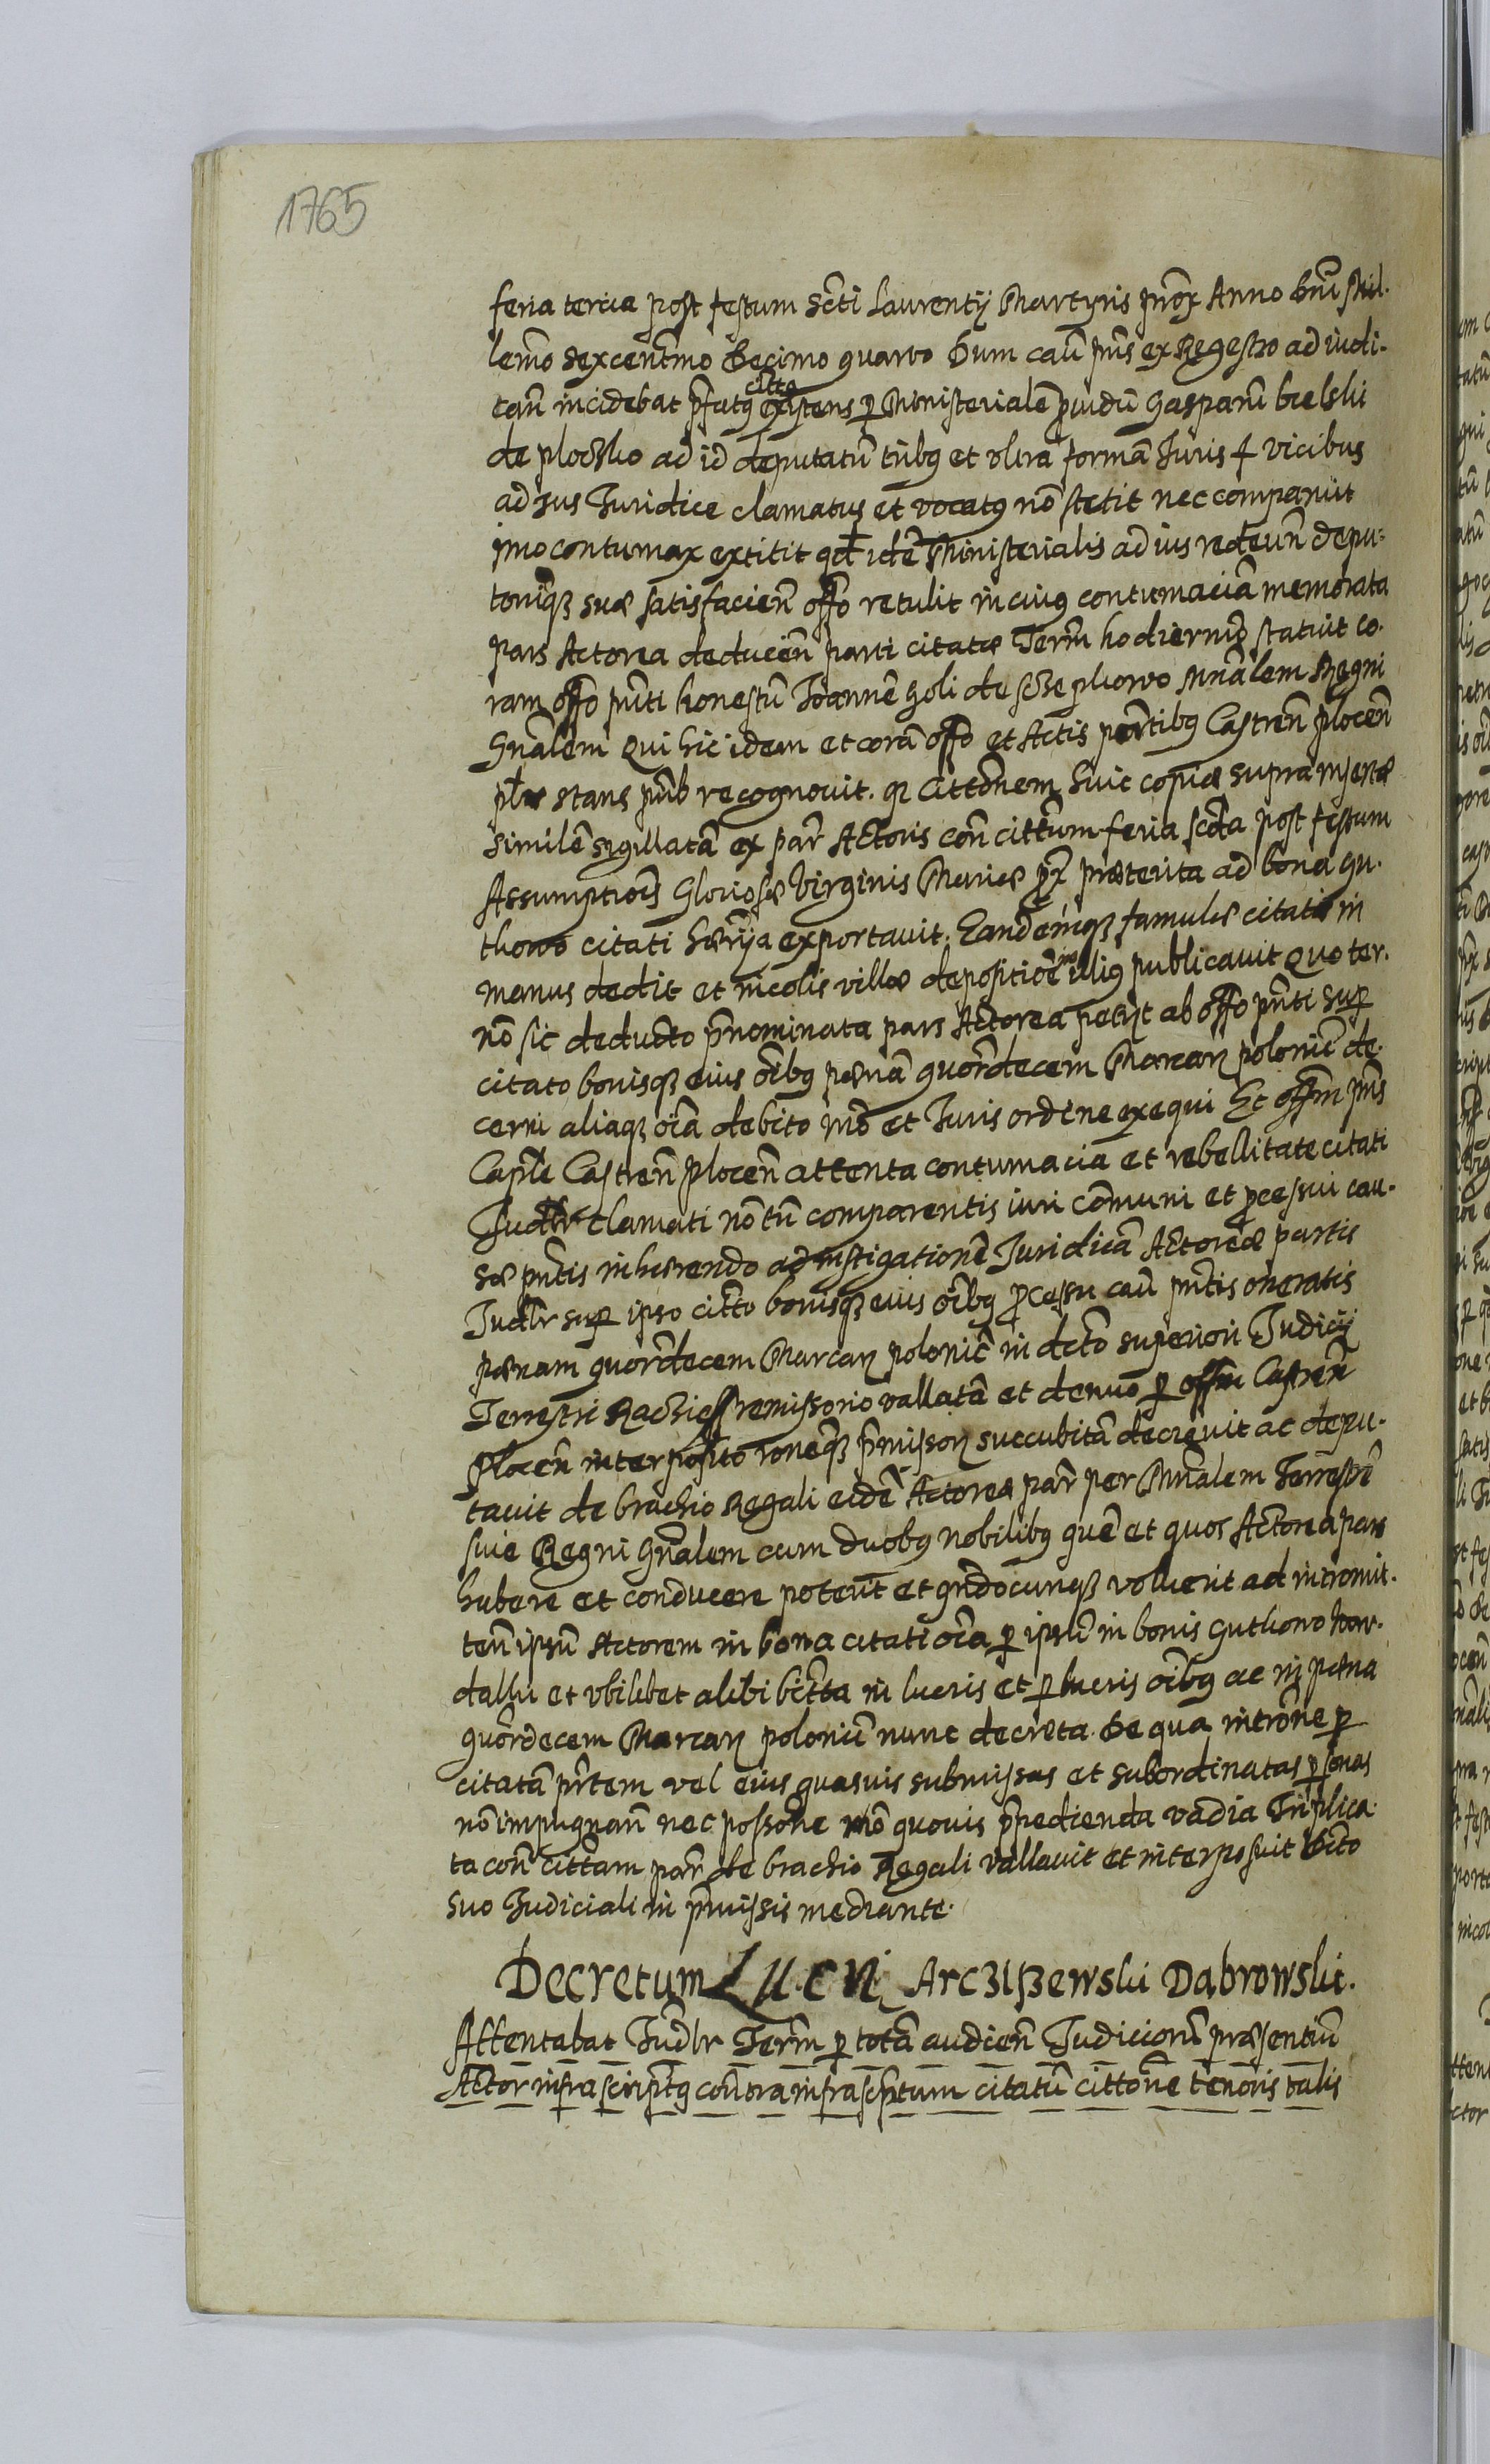 1765
feria tercia post festum Scti Laurentij Martyris prox Anno Dni Mil-
lemo sexcentmo Decimo quarto Dum cau pns ex Regestro ad iudi-
can incidebat pfatq citto existens p Ministeriale pvidu Gasparu bielski
de plocsko ad id deputatu tribq et vltra forma Juris 4 vicibus
ad Jus Juridice clamatus et vocatq no stetit nec comparuit
jmo contumax extitit qd ide Ministerialis ad ius redeun depu-
toniqz suæ satisfacien offo retulit in cuiq contumacia memorata
pars Actorea deducen parti citatæ Term hodiernu statuit co-
ram offo pnti honestu Joanne Goli de Mnalem Regni
Gnalem Qui hic idem et cora offo et Actis pntibq Castren plocen
plr stans pub recognouit. qz cittonem huic copiæ supra insertæ
simile sigillata ex par Actoris con cittum feria scda post festum
Assumptiois Gloriosæ Virginis Mariæ px præterita ad bona Gu-
thowo citati hærya exportauit. Eandemqz famulæ citati in
manus dedit et incolis villæ depositioe illiq publicauit Quo ter-
no sic deducto pnominata pars Actorea petijt ab offo pnti sup
citato bonisqz eius oibq pæna quordecem Marcar polonic de-
cerni aliaqz oia debito mo et Juris ordine exequi Et offm pns
Caple Castren plocen attenta contumacia et rebellitate citati
Judlr clamati no tu comparentis iuri comuni et pcessui cau-
sæ pntis inhærendo ad instigatione Juridica Actoreæ partis
Judlr sup ipso citto bonisqz eius oibq pcessu cau pntis oneratis
pænam quordecem Marcar polonic in dcto superiori Judicij
Terrestri remissorio vallata et denuo p offm Castren
Plocen interposito roneqz pmissor succubita decreuit ac depu-
tauit de brachio Regali eide Actoreæ par per Mnalem Terrestre
siue Regni Gnalem cum duobq nobilibq que et quos Actorea pars
habere et conducere poterit et qndocunqz voluerit ad intromit-
ten ipsu Actorem in bona citati oia p ipsu in bonis Guthowo
et vbilibet alibi hita in lucris et plucris oibq ac in pæna
quordecem Marcar polonic nunc decreta. De qua introne p
citata prtem vel eius quasuis submissas et subordinatas psonas
no impugnan nec possone mo quouis ppedienda vadia Triplica-
ta con cittam par de brachio Regali vallauit et interposuit dcto
suo Judiciali in pmissis mediante.
Decretum Arcziszewski Dabrowski.
Attentabat Judlr Term p tota audien Judicioru præsentiu
Actor infrascriptq contra infrascriptum citatu cittone tenoris talis